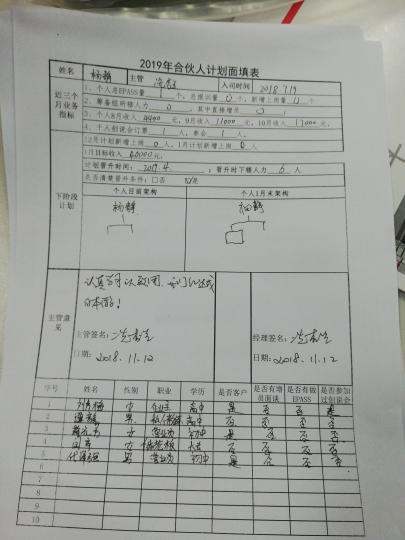 2019年合伙人计划面填表
姓名 杨静 主管 入司时间 2018.7.19
近三个月业务指标
1、个人总EPASS量 1 个，总报训量 0 个，新增上岗量 0 个
2、筹备组所辖人力 0 人，其中直接增员 0 人；
3、个人8月收入 4400 元，9月收入 11000 元，10月收入 17000 元，
4、个人创说会订票 1 人，参会 1 人。
12月计划新增上岗 0 人，1月计划新增上岗 0 人
1月目标收入 20000元；
计划晋升时间：2019.4；晋升时下辖人力 6 人
是否清楚晋升条件：□否 是
下阶段计划
个人目前架构 个人1月末架构
杨静 杨静
主管意见
认真学习
主管签名： 经理签名：
日期：2018.11.12 日期：2018.11.12
序号 姓名 性别 职业 学历 是否客户 是否有增员面谈 是否有做EPASS 是否参加过创说会
1 女 高中 是 否 否
2 男 高中 是 否 否 否
3 女 营业员 初中 是 否 否 否
4 女 大专 否 否 否
5 男 营业员 初中 是 否 否 否
6
7
8
9
10